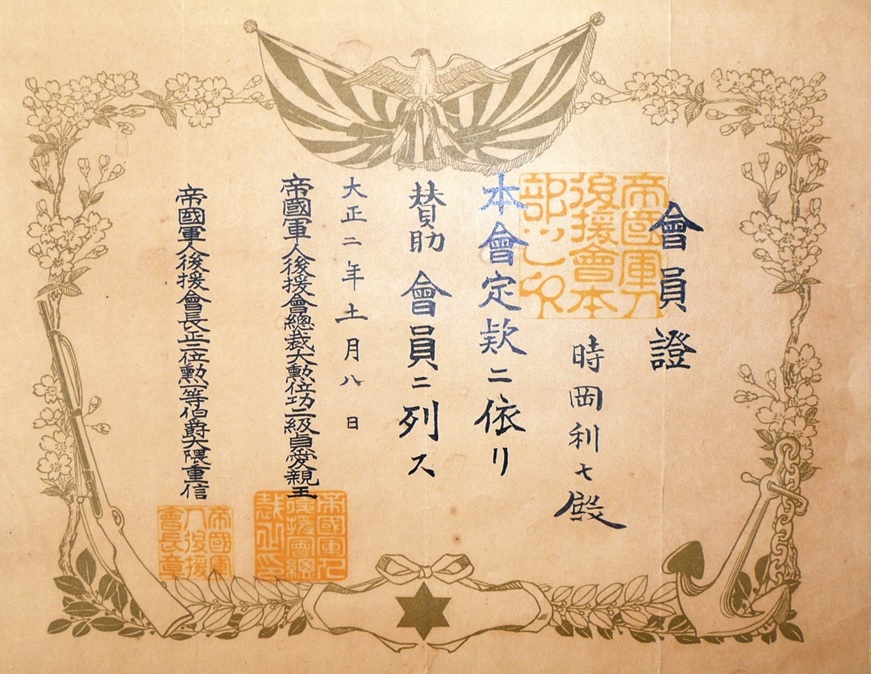 會員證
帝國軍人
後援會本
部之印
時岡利七殿
本會定款ニ依リ
賛助會員ニ列ス
大正二年十一月八日
帝國軍人後援會總裁大勳位功二級貞愛親王
帝國軍人
後援會總
裁之印
帝國軍人後援會長正二位勳一等伯爵大隈重信
帝國軍
人後援
會長章